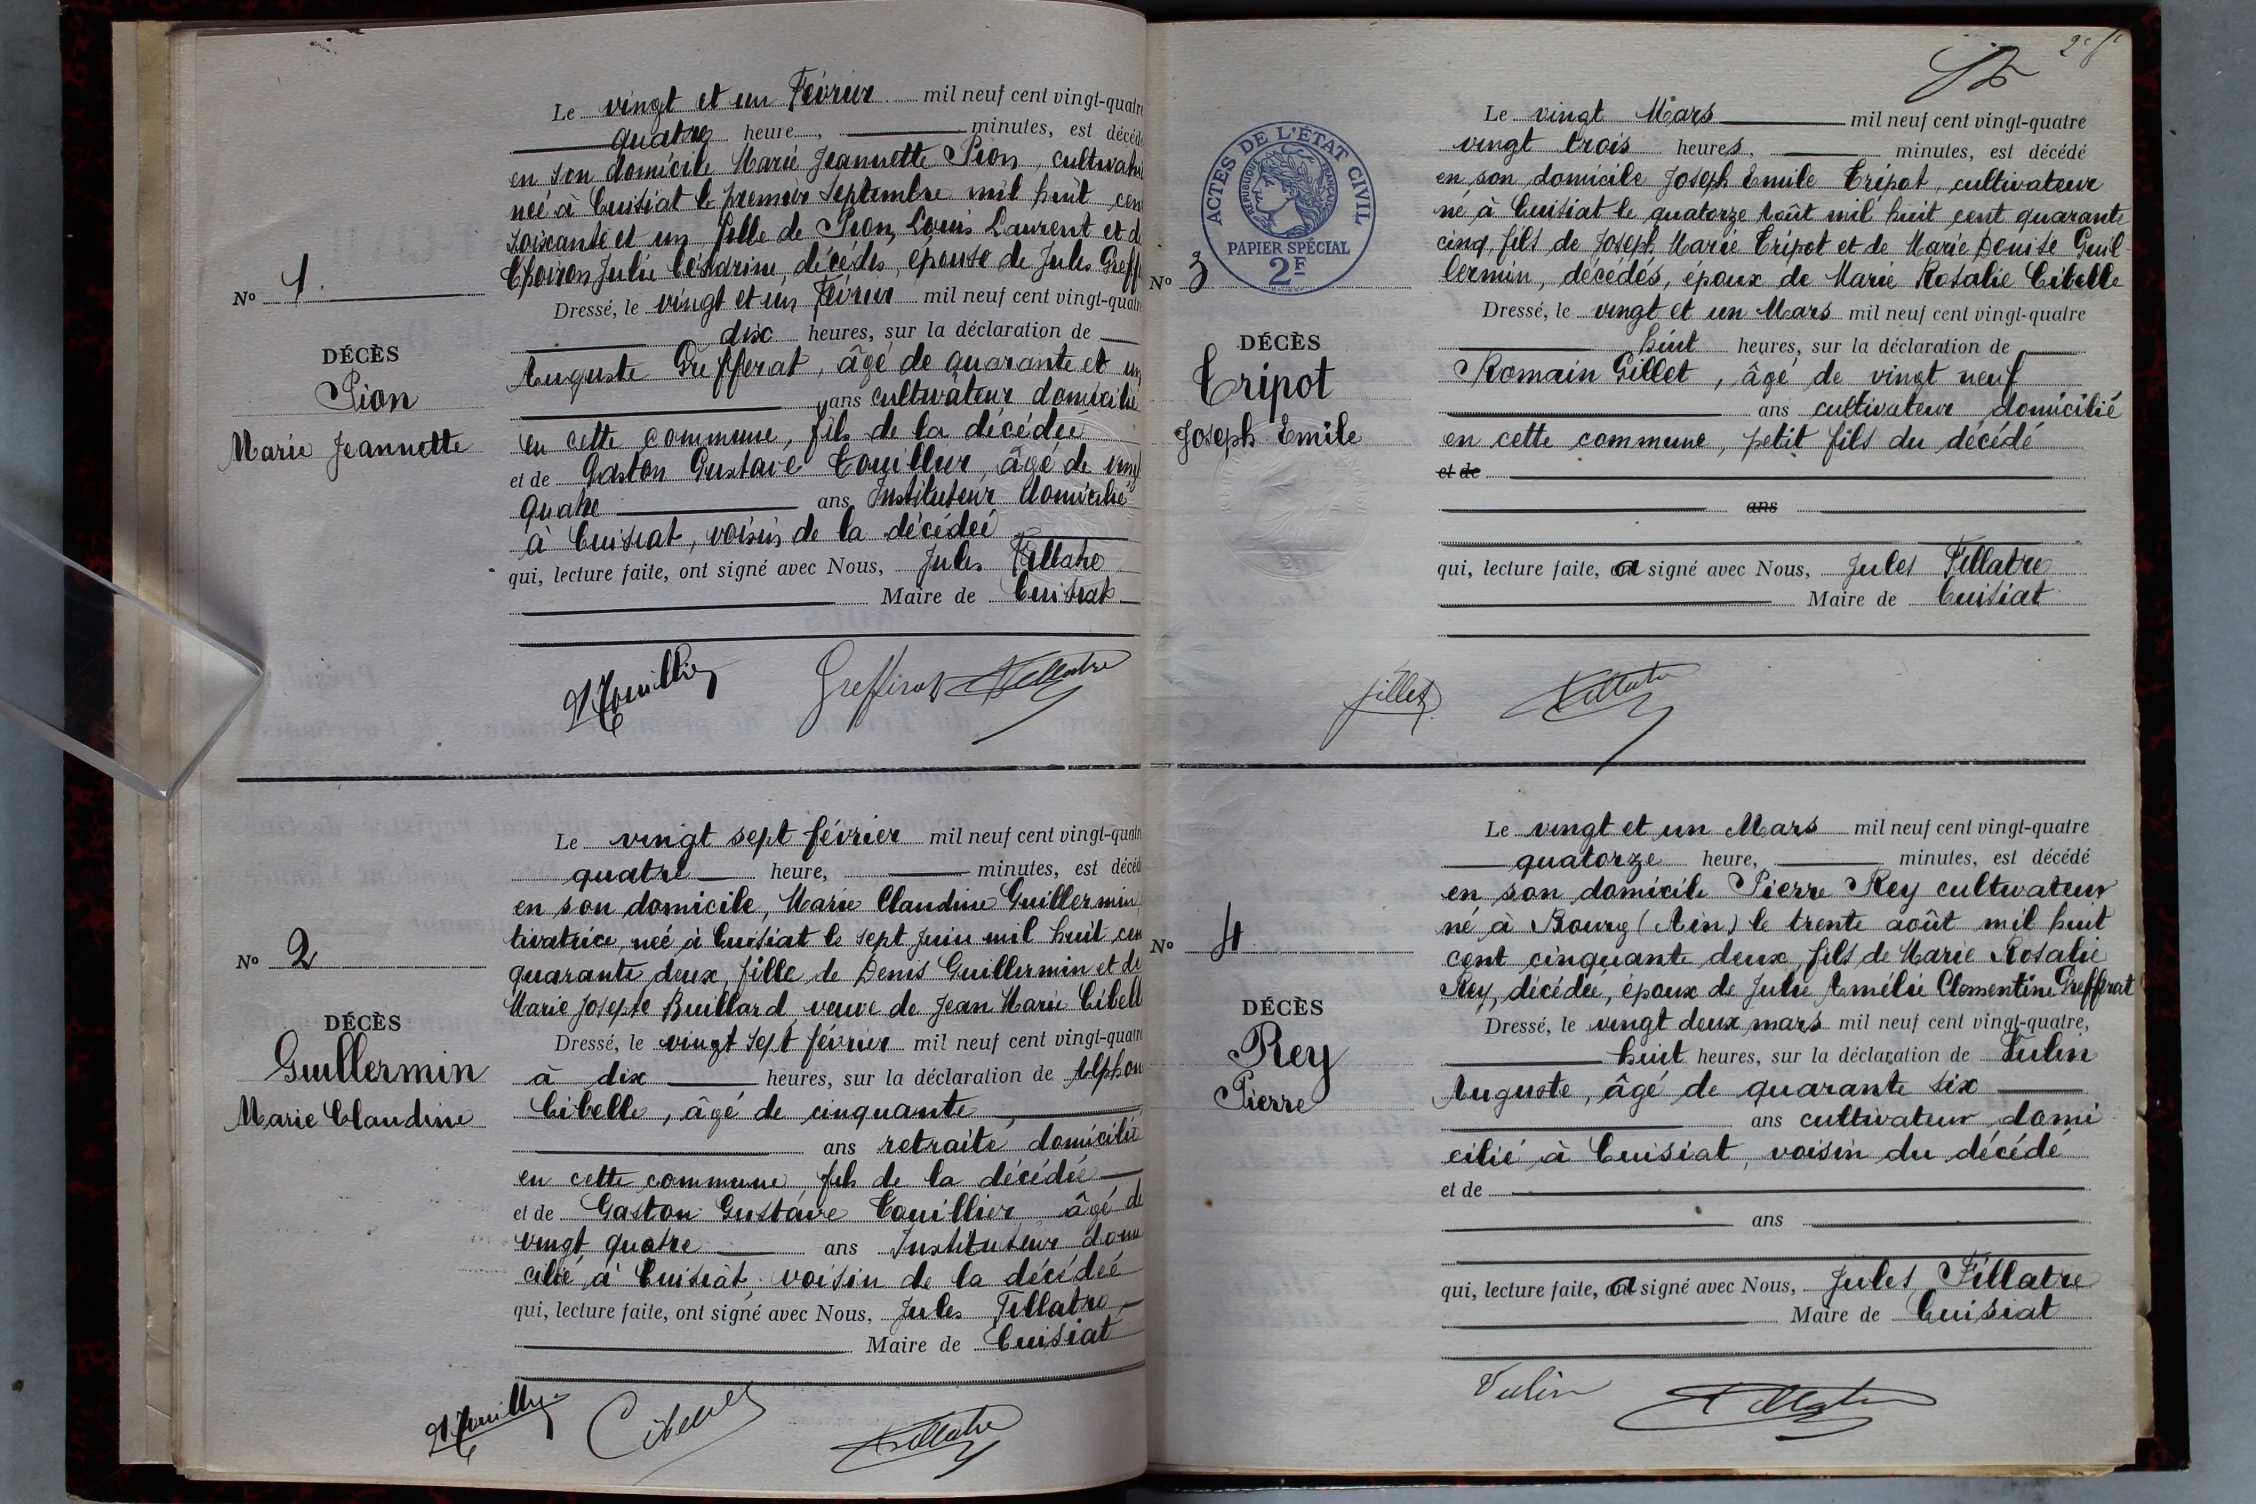 Le vingt et un Février mil neuf cent vingt-quatre
quatre heure, minutes, est décédé
en son domicile Marie Jeannette Pion, cultivatri
née à Cuisiat le premier Septembre mil huit cen
soixante et un fille de Pion, Louis Laurent et d
Julie décédés, épouse de Jules Greff
Nº 1
Dressé, le vingt et un Février mil neuf cent vingt-quatr
dix heures, sur la déclaration de
DÉCÈS
Pion
Marie Jeannette
Auguste Grefferat, âgé de quarante et un
ans cultivateur domicilié
en cette commune, fils de la décédée
et de Gaston Gustave Touillier, âgé de vingt
quatre ans Instituteur domicilié
à Cuisiat, voisin de la décédée
qui, lecture faite, ont signé avec Nous, Jules Fillatre
Maire de Cuisiat
Touillier Grefferat Fillatre
Le vingt sept février mil neuf cent vingt-quatr
quatre heure, minutes, est décéd
en son domicile, Marie Claudine Guillermin
tivatrice, née à Cuisiat le sept juin mil huit cen
Nº 2
quarante deux, fille de Denis Guillermin et de
Marie Josepte Buillard, veuve de Jean Marie Cibell
DÉCÈS
Guillermin
Marie Claudine
Dressé, le vingt sept février mil neuf cent vingt-quatr
à dix heures, sur la déclaration de Alphon
Cibelle, âgé de cinquante,
ans retraité domicilié
en cette commune fils de la décédée
et de Gaston Gustave Touillier âgé de
vingt quatre ans Instituteur domi
cilié à Cuisiat, voisin de la décédée
qui, lecture faite, ont signé avec Nous, Jules Fillatre
Maire de Cuisiat
Touillier Cibelle Fillatre
ACTES DE L'ÉTAT CIVIL
RÉPUBLIQUE FRANÇAISE
PAPIER SPÉCIAL
2F
Le vingt Mars mil neuf cent vingt-quatre
vingt trois heures, minutes, est décédé
en son domicile Joseph Emile Tripot, cultivateur
né à Cuisiat le quatorze Août mil huit cent quarante
cinq, fils de Joseph Marie Tripot et de Marie Denise Guil-
lermin, décédés, époux de Marie Rosalie Cibelle
Nº 3
Dressé, le vingt et un Mars mil neuf cent vingt-quatre
huit heures, sur la déclaration de
DÉCÈS
Tripot
Joseph Emile
Romain Gillet, âgé de vingt neuf
ans cultivateur domicilié
en cette commune, petit fils du décédé
et de
ans
qui, lecture faite, a signé avec Nous, Jules Fillatre
Maire de Cuisiat
Gillet Fillatre
Le vingt et un Mars mil neuf cent vingt-quatre
quatorze heure, minutes, est décédé
en son domicile Pierre Rey cultivateur
né à Bourg (Ain) le trente août mil huit
Nº 4
cent cinquante deux, fils de Marie Rosalie
Rey, décédée, époux de Julie Amélie Clementine Grefferat
DÉCÈS
Rey
Pierre
Dressé, le vingt deux mars mil neuf cent vingt-quatre,
huit heures, sur la déclaration de Vulin
Auguste, âgé de quarante six
ans cultivateur domi
cilié à Cuisiat, voisin du décédé
et de
ans
qui, lecture faite, a signé avec Nous, Jules Fillatre
Maire de Cuisiat
Vulin Fillatre